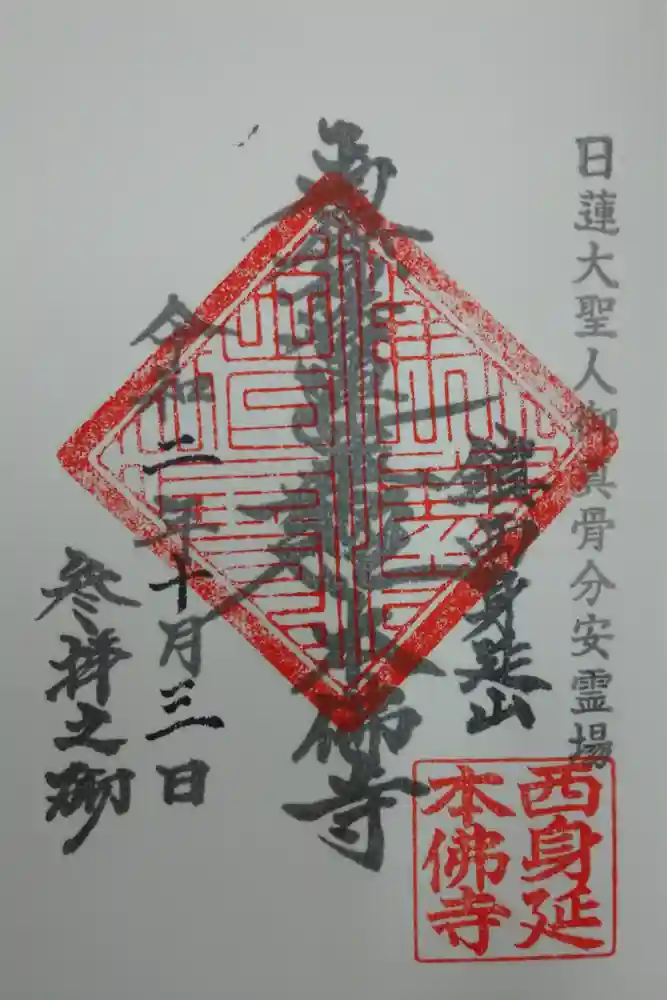 日蓮大聖人御真骨分安霊場
鎮西身延山
南無妙法蓮華経 本佛寺
令和二年十月三日
参拝之砌
西身延
本佛寺